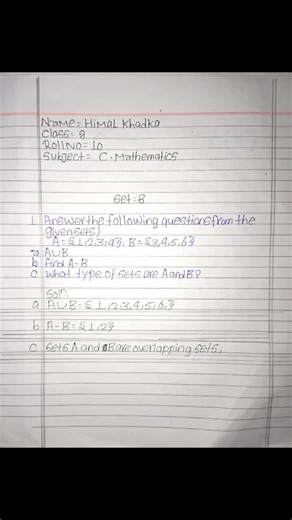 Name = Himal Khadka
Class = 8
Roll No = 10
Subject = C. Mathematics
Set = B
1. Answer the following questions from the
given sets)
A = {1,2,3,4}, B = {3,4,5,6}
a A∪B
b find A-B
c What type of sets are A and B?
Soln.
a A∪B = {1,2,3,4,5,6,}
b A-B = {1,2}
c Sets A and B are overlapping sets.